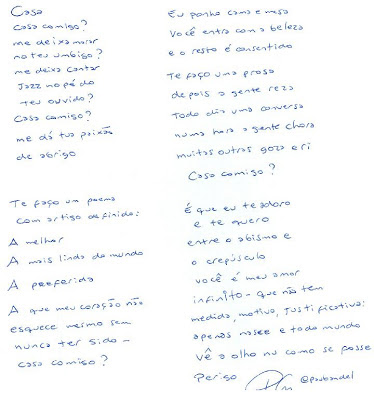 Casa
Casa comigo?
me deixa morar
no teu umbigo?
me deixa cantar
Jazz no pé do
teu ouvido?
Casa comigo?
me dá tua paixão
de abrigo
Eu ponho cama e mesa
Você entra com a beleza
e o resto é consentido
Te faço uma prosa
depois a gente reza
Todo dia uma conversa
numa hora a gente chora
muitas outras goza e ri
Casa comigo?
Te faço um poema
com artigo definido:
A melhor
A mais linda do mundo
A preferida
A que meu coração não
esquece mesmo sem
nunca ter sido -
casa comigo?
É que eu te adoro
e te quero
entre o abismo e
o crepúsculo
você é meu amor
infinito - que não tem
medida, motivo, justificativa:
apenas nasce e todo mundo
vê a olho nu como se fosse
perigo